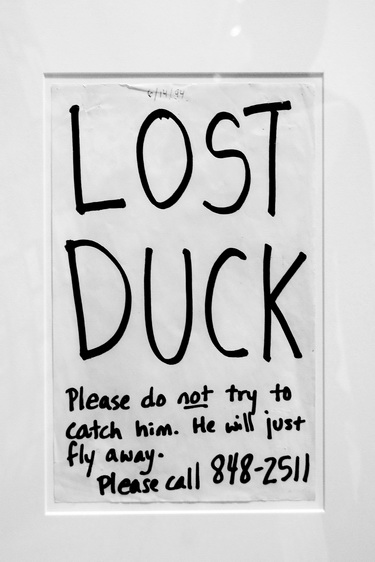 6/14/94
LOST
DUCK
Please do not try to
catch him. He will just
fly away.
Please call 848-2511